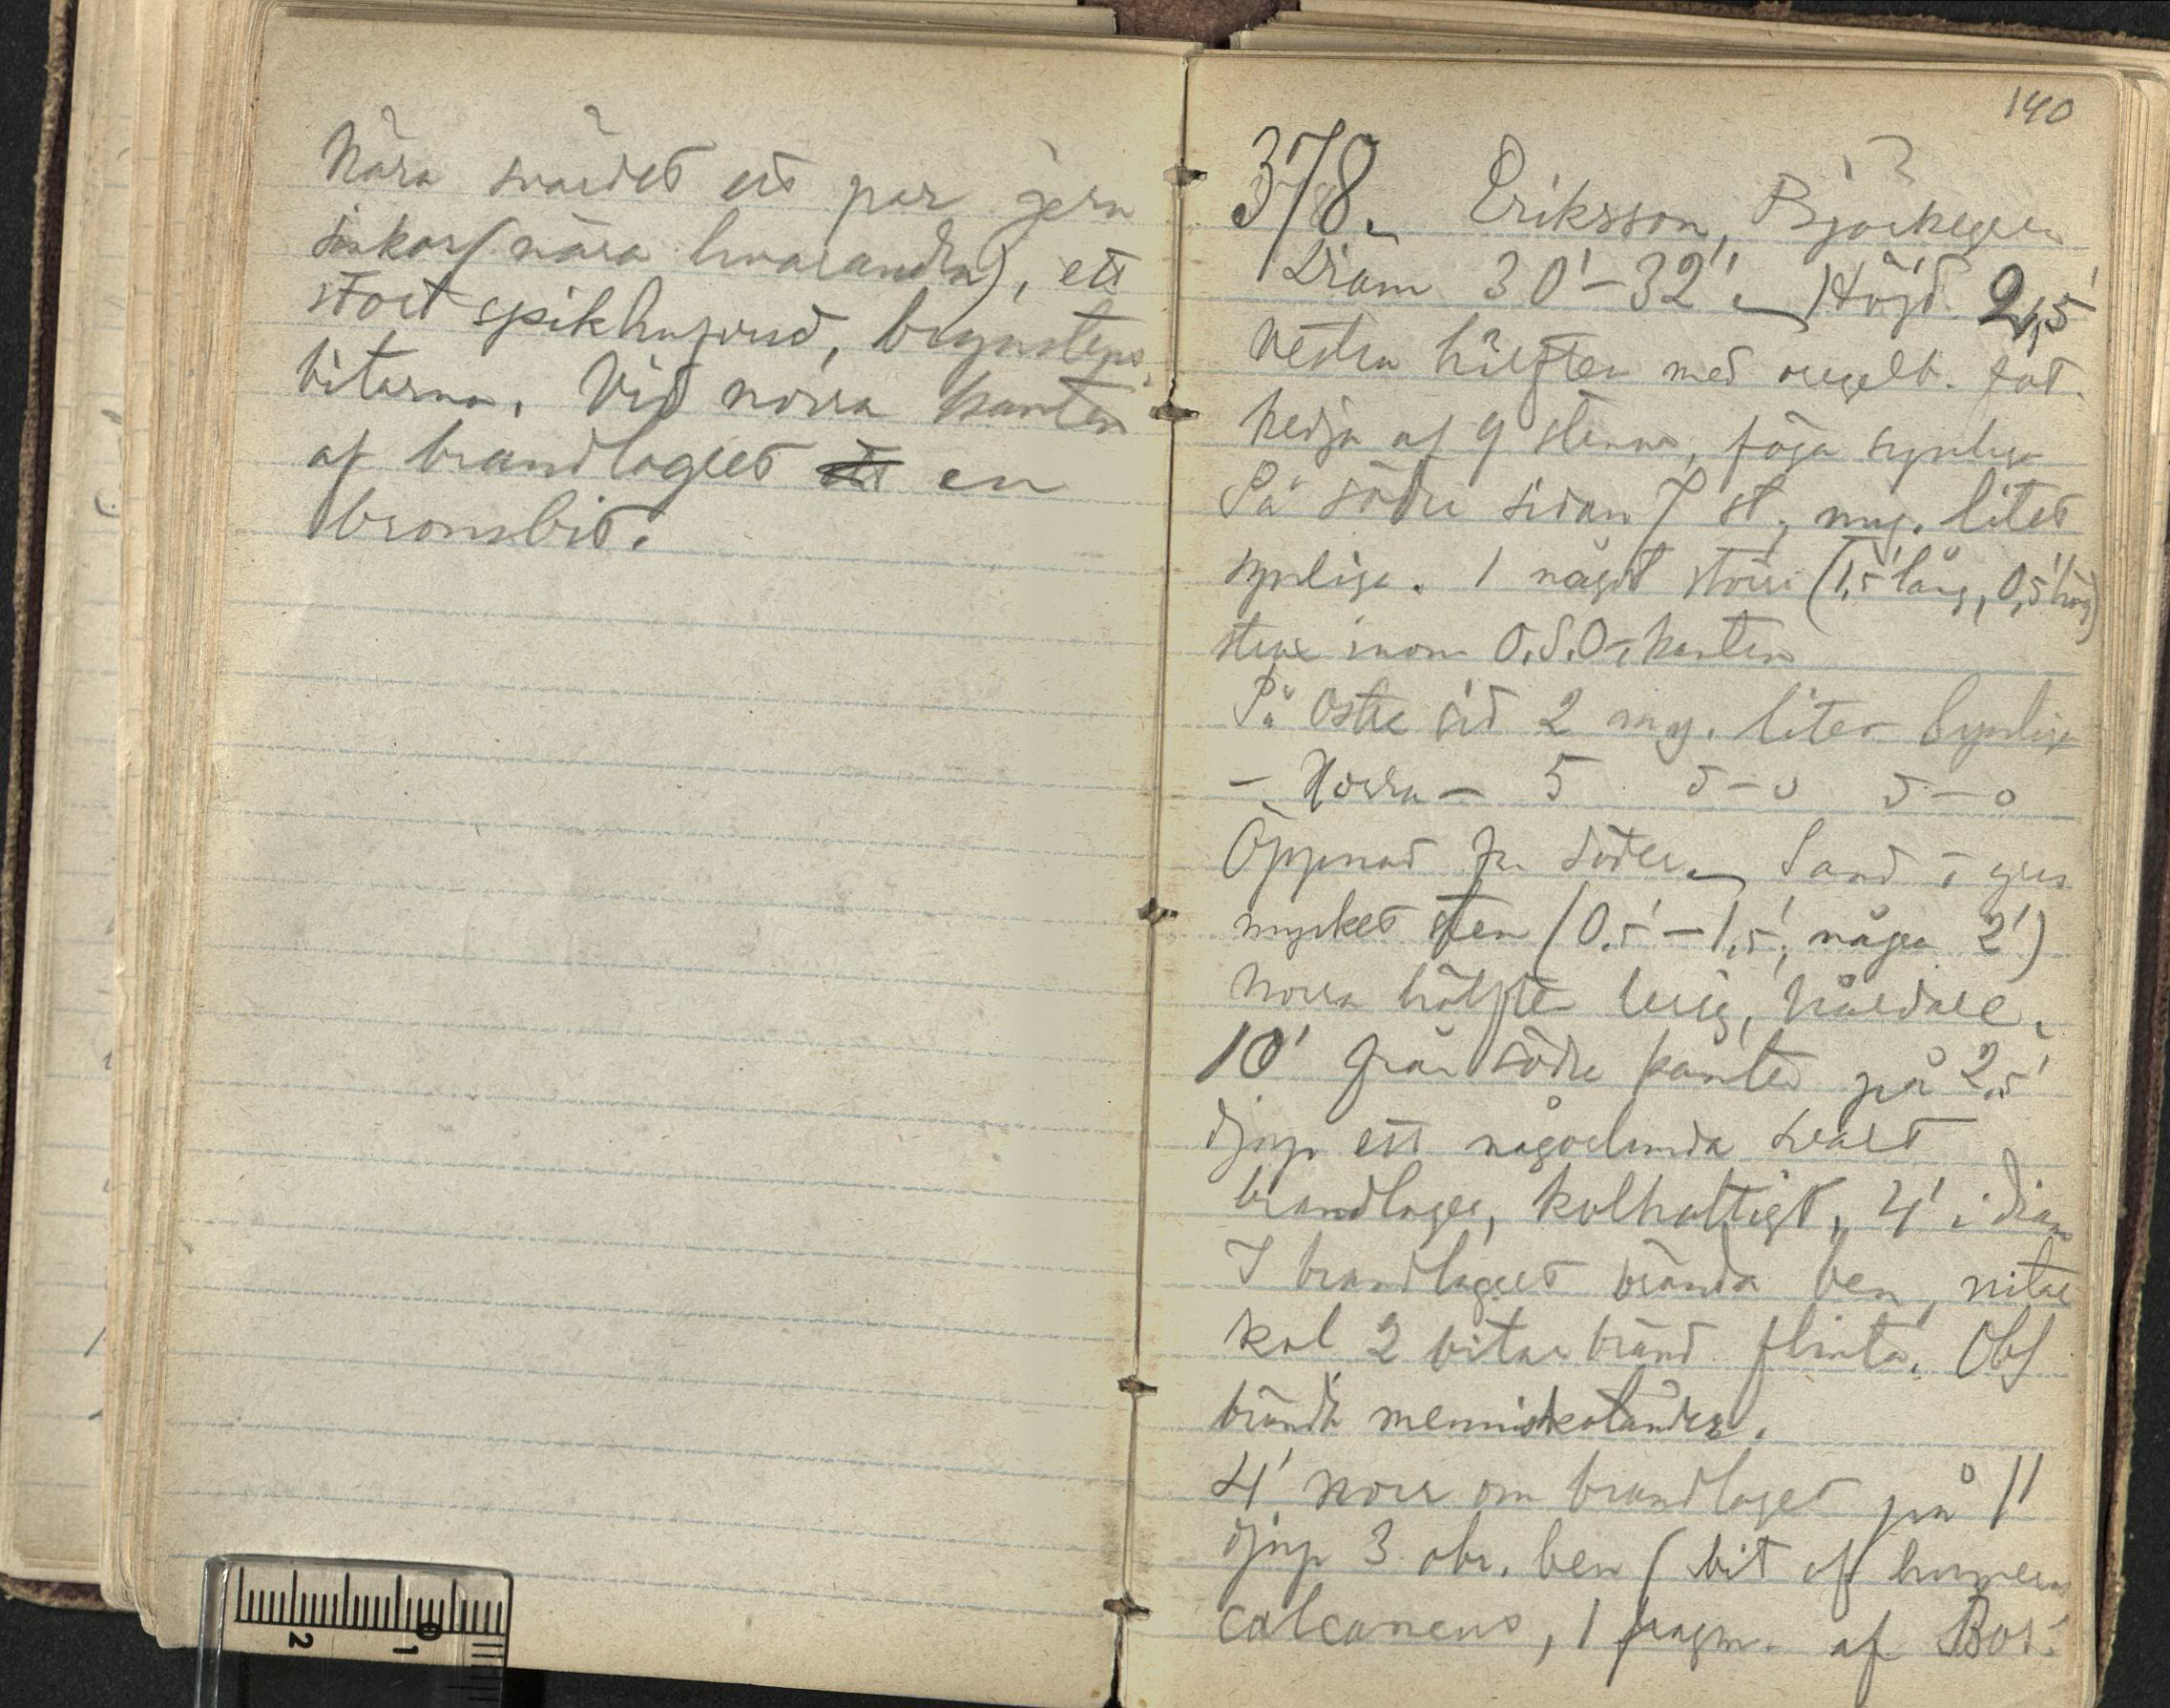 Nära svärdet ett par jern
sinkor (nära hvarandra), ett
stort spikhufvud, brynstens
bitarna. Vid norra kanten
af brandlagret ett en
bronsbit.
140
378. Eriksson, Björkegren
Diam 30'-32'. Höjd. 2,5'
Vestra hälften med regelb. fot
kedja af 9 stenar, föga synliga
På södra sidan 7 st, myc. litet
synliga. 1 något större (1,5' lång, 0,5' hög)
sten inom O.S.O-kanten
På Östra sid 2 myc. litet synliga
- Norra - 5 5-o 5-o
Öppnad fr. söder. Sand o grus
mycket sten (0,5'-1,5', några 2')
Norra hälften lerig, hårdare.
10' från södra kanten på 2,5'
djup ett någorlunda svart
brandlager, kolhaltigt, 4' i diam
I brandlagret brända ben, nitar
kol 2 bitar bränd flinta. Obs
brända menniskotänder.
4' norr om brandlaget på 1'
djup 3 obr. ben (bit af humerus
calcaneus, 1 fragm. af Bos.
0 1 2